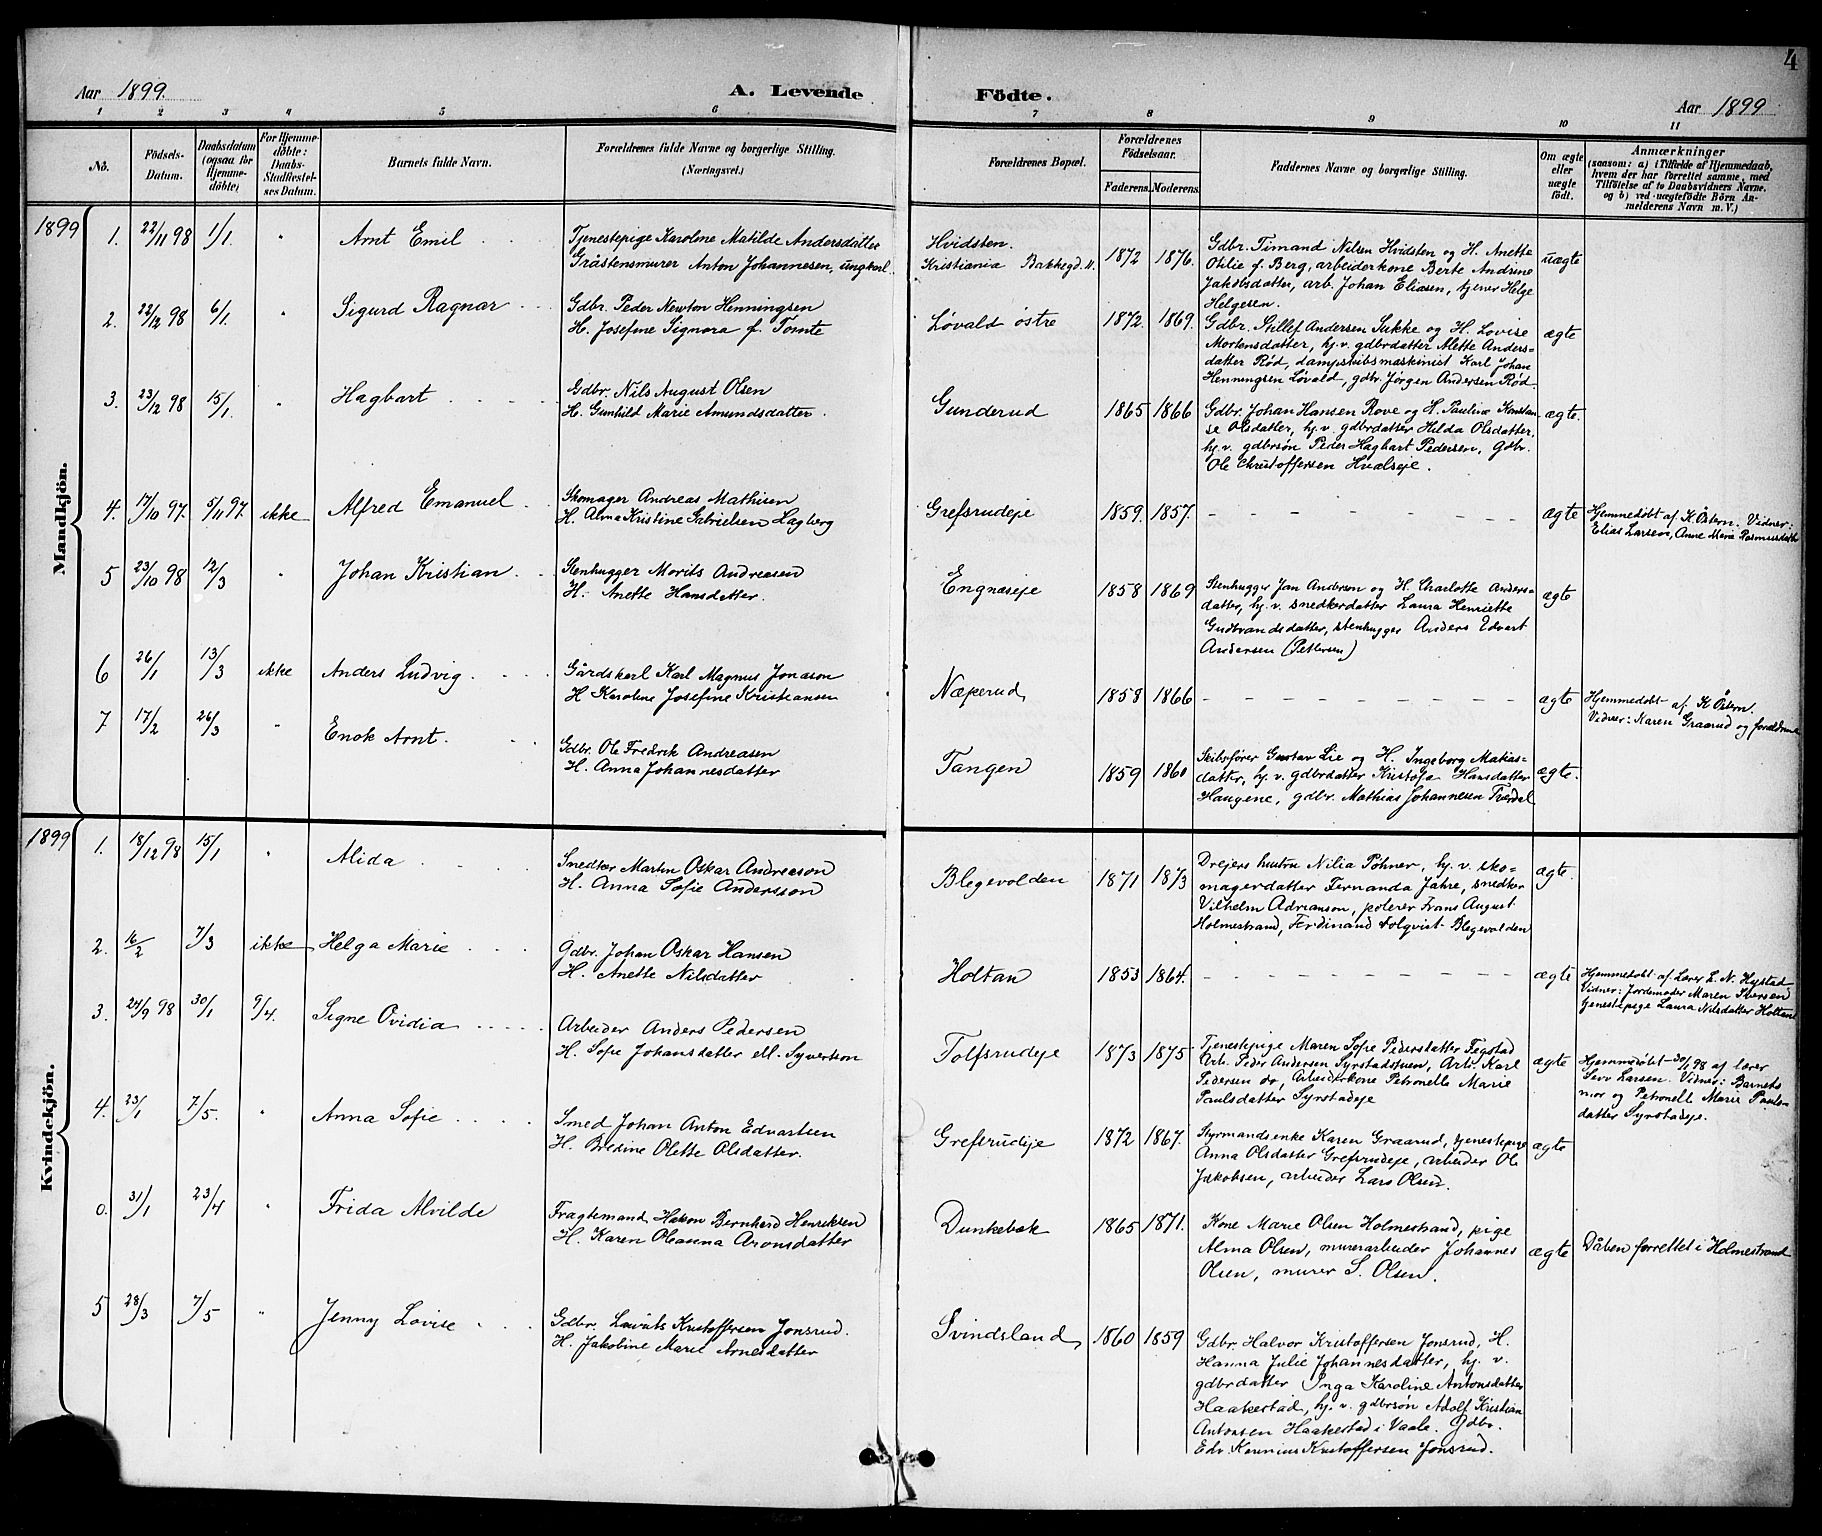 4
Aar 1899.
A. Levende Födte.
Aar 1899
1 2 3 4 5 6 7 8 9 10 11
No.
Födsels-Datum.
Daabsdatum (ogsaa for Hjemme-döbte)
For Hjemme-döbte: Daabs-Stadfæstel-ses Datum.
Barnets fulde Navn.
Forældrenes fulde Navne og borgerlige Stilling.
(Næringsvei.)
Forældrenes Bopæl.
Forældrenes Födselsaar.
Faderens. Moderens.
Faddernes Navne og borgerlige Stilling.
Om ægte eller uægte födt.
Anmærkninger
(saasom: a) i Tilfælde af Hjemmedaab,
hvem der har forrettet samme, med
Tilföielse af to Daabsvidners Navne,
og b) ved uægtefödte Börn An-
melderens Navn m. V.)
Mandkjön.
1899
1. 22/11 98 1/1. " Arnt Emil
Tjenestepige Karoline Matilde Andersdatter
Gråstensmurer Anton Johannesen, ungkarl.
Hvidsten.
Kristiania Bakkegd. 11.
1872 1876.
Gdbr. Timand Nilsen Hvidsten og H. Anette
Otilie f. Berg, arbeiderkone Berte Andrine
Jakobsdatter, arb. Johan Eliasen, tjener Helge
Helgesen.
uægte
2. 22/12 98 6/1. " Sigurd Ragnar
Gdbr. Peder Newton Henningsen
H. Josefine Signora f. Tomte
Løvald østre
1872. 1869.
Gdbr. Sillef Andersen Sukke og H. Lovise
Mortensdatter, hj.v. gdbrdatter Mette Anders-
datter Rød, dampskibsmaskinist Karl Johan
Henningsen Løvald, gdbr. Jørgen Andersen Rød.
ægte
3. 23/12 98 15/1. " Hagbart
Gdbr. Nils August Olsen
H. Gunhild Marie Amundsdatter.
Gunderud
1865 1866
Gdbr. Johan Hansen Rove og H. Pauline Konstan-
se Olsdatter, hj.v. gdbrdatter Hilda Olsdatter,
hj.v. gdbrsøn Peder Hagbart Pedersen, Gdbr.
Ole Christoffersen Hvalseje.
ægte.
4. 17/10 97. 5/11 97. ikke Alfred Emanuel
Skomager Andreas Mathisen
H. Alma Kristine Gabrielsen Lagberg
Grefsrudeje
1859. 1857.
ægte
Hjemmedøbt af K. Østern. Vidner:
Elias Larsen, Anne Maria Rasmusdatter
5 23/10 98 12/3 " Johan Kristian
Stenhugger Morits Andreasen
H. Anette Hansdatter.
Engnæseje
1858 1869
Stenhugger Jan Anderson og H. Charlotte Anders-
datter, hj.v. snedkerdatter Laura Henriette
Gudbrandsdatter, stenhugger Anders Edvart
Andersen (Pettersen)
ægte
6 26/1 13/3 ikke Anders Ludvig
Gårdskarl Karl Magnus Jonason
H Karoline Josefine Kristiansen
Næperud
1858 1866
ægte
Hjemmedøbt af K Østern.
Vidner: Karen Graarud og forældrene
7 17/2 26/3 " Enok Arnt.
Gdbr. Ole Fredrik Andreasen
H. Anna Johannesdatter
Tangen
1859 1860
Skibsfører Gustav Lie og H. Ingeborg Matias-
datter, hj.v. gdbrdatter Kristofa Hansdatter
Haugene, gdbr. Mathias Johannesen Tverdal
ægte.
Kvindekjön.
1899
1. 18/12 98 15/1 " Alida
Snedker Martin Oskar Andreason
H. Anna Sofie Andersson
Blegevolden
1871 1873
Drejers hustru Nilia Pöhner, hj.v. sko-
magerdatter Fernanda Jahre, snedker
Vilhelm Adrianson, polerer Frans August
Holmestrand, Ferdinand Holqvist Blegevolden
ægte.
2. 16/2 7/3 ikke Helga Marie
Gdbr. Johan Oskar Hansen
H. Anette Nilsdatter
Holtan
1853 1864.
ægte
Hjemmedøbt af Lærer L. N. Hystad
Vidner: Jordemoder Maren Iversen
tjenestepige Laura Nilsdatter Holtan
3. 24/9 98 30/1 9/4. Signe Ovidia
Arbeider Anders Pedersen
H. Sofie Johansdatter ell. Syvertson
Tolfsrudeje
1873 1875
Tjenestepige Maren Sofie Pedersdatter Fegstad
Arb. Peder Andersen Syrstadstuen, Arb. Karl
Pedersen do, Arbeiderkone Petronelle Marie
Paulsdatter Syrstadeje
ægte
Hjemmedøbt 30/1 98 af lærer
Sevr Larsen. Vidner: Barnets
mor og Petronell Marie Pauls-
datter Syrstadeje.
4. 23/1 7/5. " Anna Sofie
Smed Johan Anton Edvartsen
H. Bredine Olette Olsdatter.
Grefsrudeje
1872 1867.
Styrmandsenke Karen Graarud, tjenestepige
Anna Olsdatter Grefsrudeje, arbeider Ole
Jakobsen, arbeider Lars Olsen.
ægte
0. 31/1 23/4 " Frida Alvilde
Fragtemand Hakon Bernhard Henriksen
H. Karen Oleanna Aronsdatter
Dunkebæk
1865 1871.
Kone Marie Olsen Holmestrand, pige
Alma Olsen, murerarbeider Johannes
Olsen, murer S. Olsen.
ægte
Dåben forrettet i Holmestrand
5 28/3 7/5 " Jenny Lovise
Gdbr. Lavrits Kristoffersen Jonsrud.
H. Jakobine Marie Arnesdatter
Svindsland
1860 1859
Gdbr. Halvor Kristoffersen Jonsrud, H.
Hanna Julie Johannesdatter, hj. v.
gdbrdatter Inga Karoline Antonsdatter
Haakestad, hj.v. gdbrsøn Adolf Kristian
Antonsen Haakestad i Vaale. Gdbr.
Edv. Kristoffersen Jonsrud.